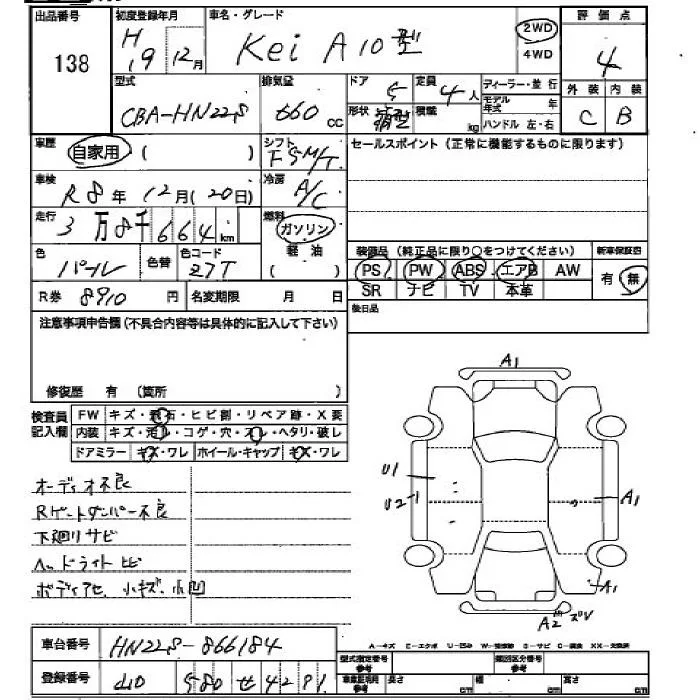 出品番号 初度登録年月 車名・グレード 評価点
138 H19 12月 Kei A 10型 2WD 4
4WD
型式 排気量 ドア 定員 ディーラー・並行 外装 内装
CBA-HN22S 660 cc 5 4人 モデル年式 年 C B
形状 箱型 積載 kg ハンドル 左・右
車歴 自家用 ( ) シフト F5M/T セールスポイント (正常に機能するものに限ります)
車検 R8年 12月 (20日) 冷房 A/C
走行 3万8千664km 燃料 ガソリン
軽油
色 パール 色替 色コード Z7T
装備品 (純正品に限り○をつけてください) 新車保証書
PS PW ABS エアB AW 有・無
SR ナビ TV 本革
R券 8910円 名変期限 月 日
後日品
注意事項申告欄 (不具合内容等は具体的に記入して下さい)
修復歴 有 (箇所 )
検査員記入欄
FW キズ・飛石・ヒビ割・リペア跡・X要
内装 キズ・汚レ・コゲ・穴・スレ・ヘタリ・破レ
ドアミラー キズ・ワレ ホイール・キャップ キズ・ワレ
オーディオ不良
Rゲートダンパー不良
下廻りサビ
ヘッドライトヒビ
ボディアセ 小キズ・小凹
A1
U1
U2-1
A1
A1
A2 ズリ
A-キズ E-エクボ U-凹み W-補修跡 S-サビ C-腐食 XX-交換済
車台番号 HN22S-866184
登録番号 580 せ 4281
型式指定番号 類別区分番号
車庫証明用参考 長さ cm 幅 cm 高さ cm